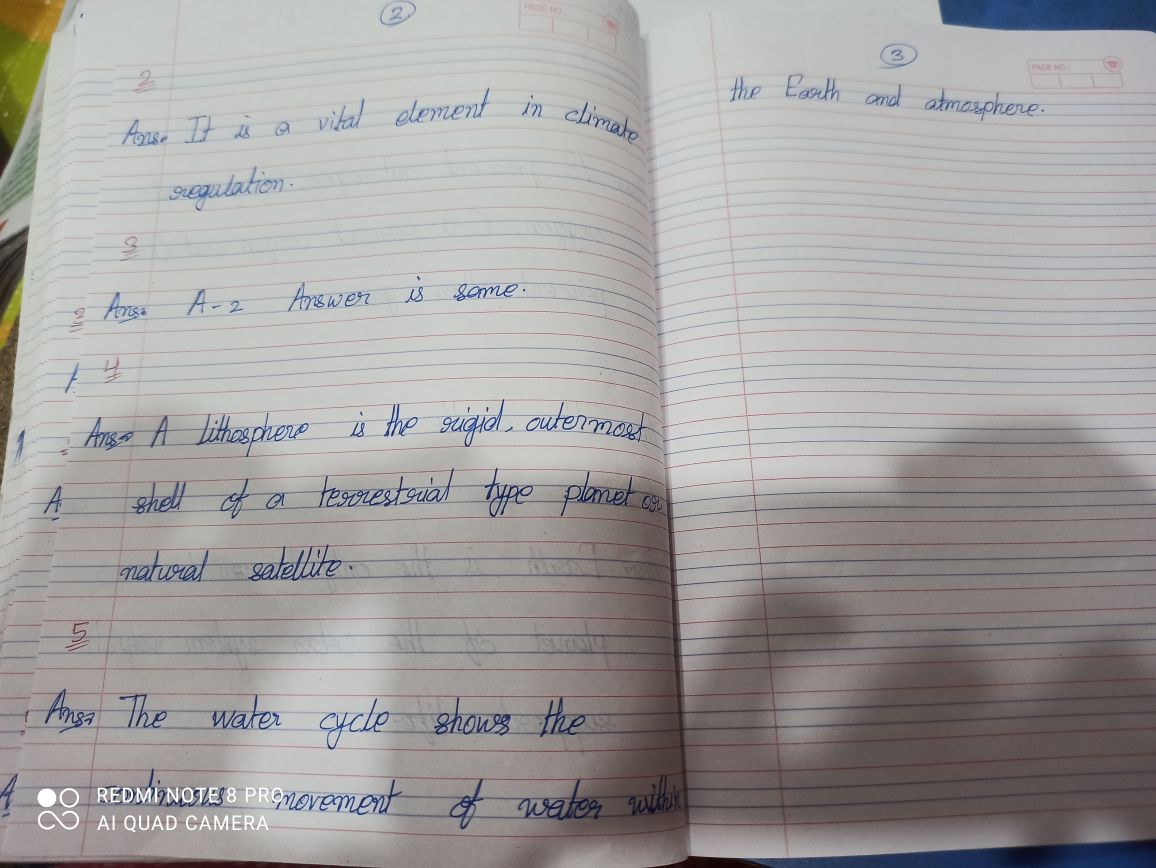 2
PAGE NO:
2
Ans. It is a vital element in climate
regulation.
3
Ans. A-2 Answer is same.
4
Ans A lithosphere is the rigid, outermost
shell of a terrestrial type planet or
natural satellite.
5
Ans The water cycle shows the
continuous movement of water within
REDMI NOTE 8 PRO
AI QUAD CAMERA
3
PAGE NO:
the Earth and atmosphere.